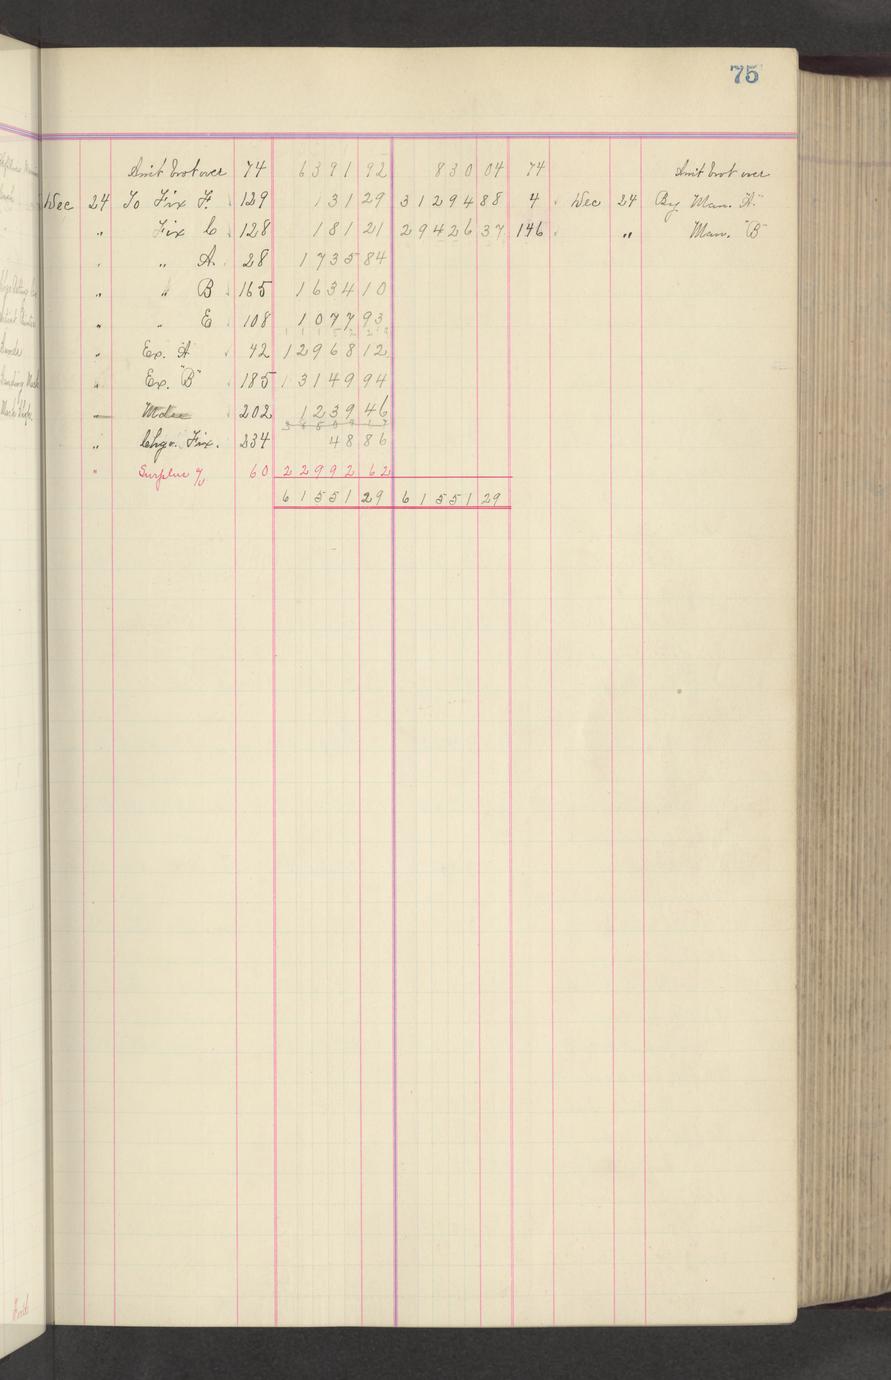 75
Amt brot over 74 6391 92 830 04 74 Amt brot over
Dec 24 To Fix F. 129 131 29 31294 88 4 Dec 24 By Man. "A"
" Fix C 128 181 21 29426 37 146 " Man. "B"
" " A. 28 1735 84
" " B 165 1634 10
" " E 108 1077 93
" Ex. A 42 12968 12
" Ex. "B" 185 13149 94
" Mdse 202 1239 46
" Chgo. Fix. 234 48 86
" Surplus a/c 60 22992 62
61551 29 61551 29